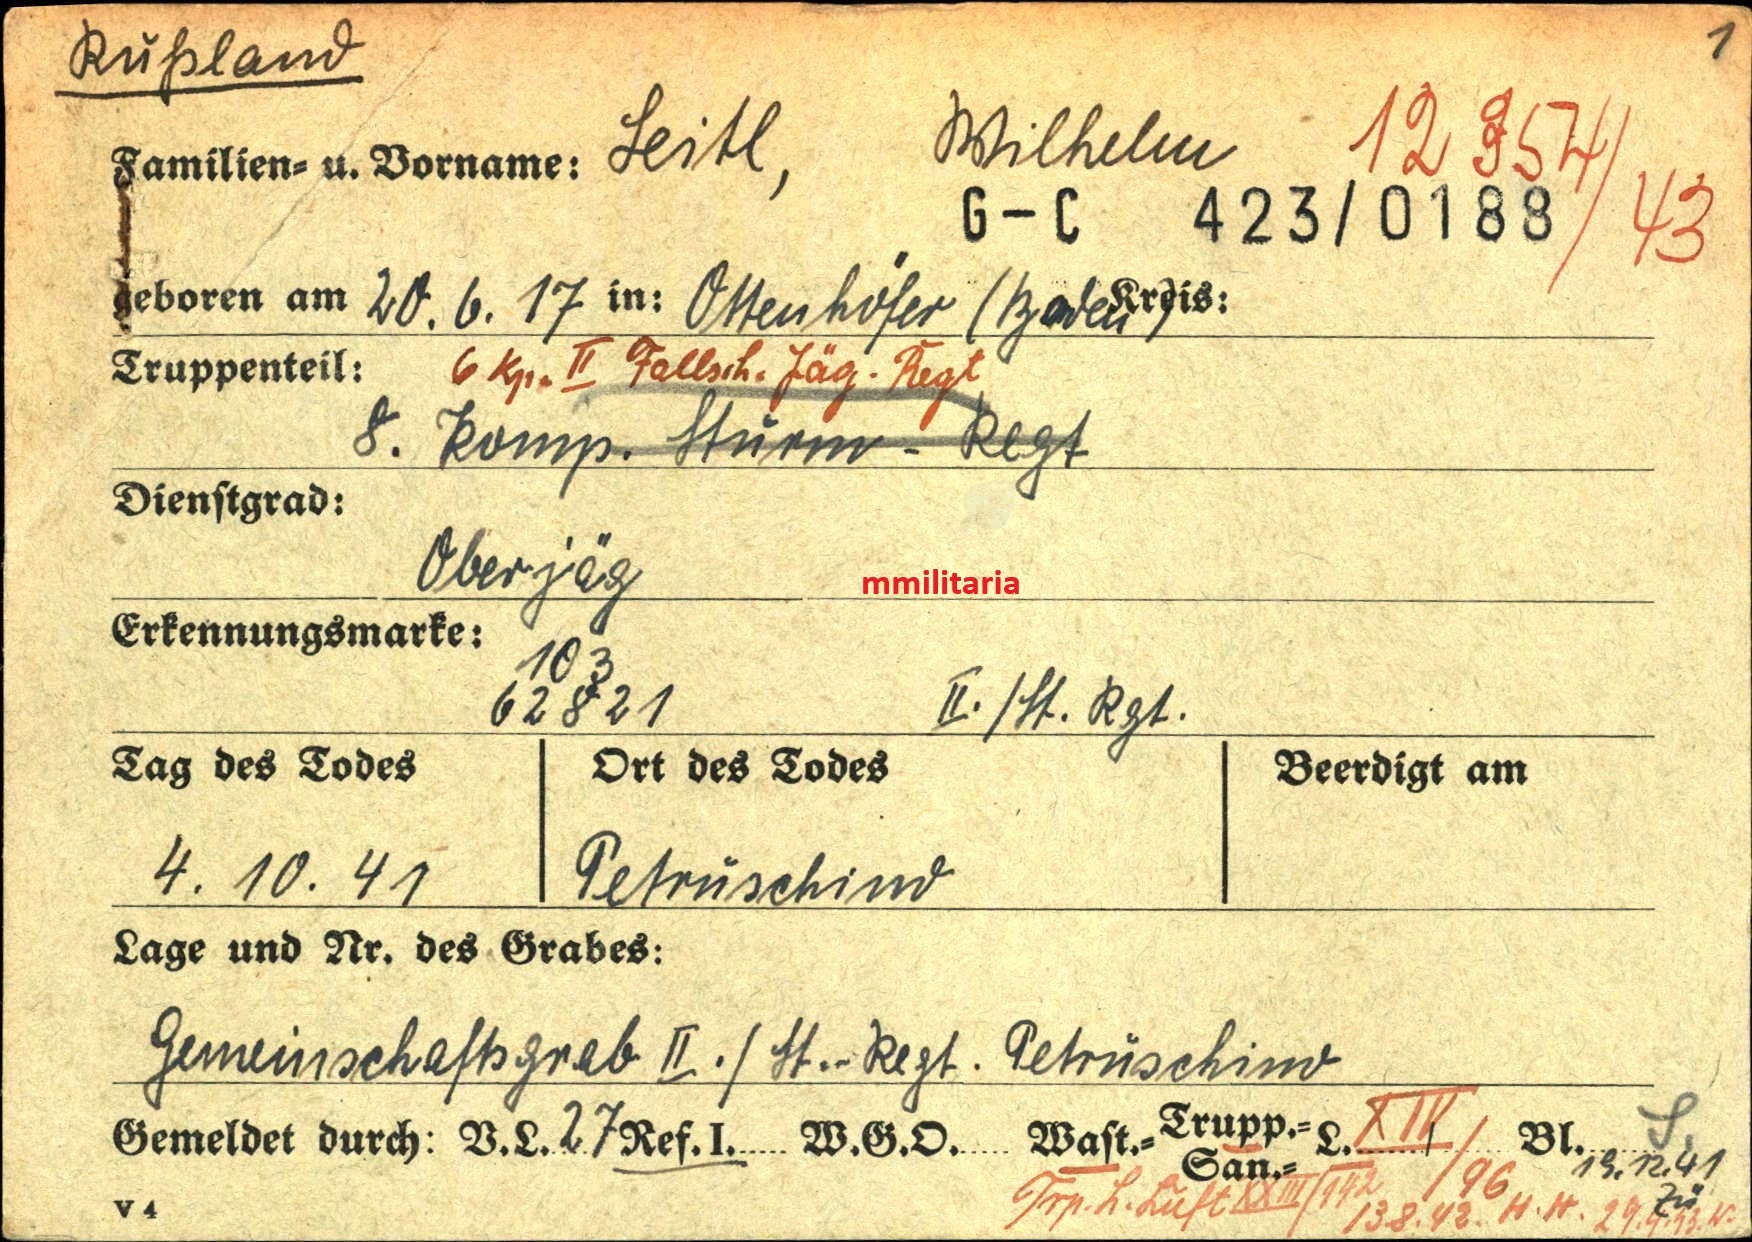 Rußland
1
Familien- u. Vorname: Seitl, Wilhelm
12 954/43
G-C 423/0188
geboren am 20. 6. 17 in: Ottenhöfer (Baden) Kreis:
Truppenteil: 6 Kp. II Fallsch. Jäg. Regt
8. Komp. Sturm - Regt
Dienstgrad:
Oberjäg
mmilitaria
Erkennungsmarke:
103
62821 II./St. Rgt.
Tag des Todes Ort des Todes Beerdigt am
4. 10. 41 Petruschino
Lage und Nr. des Grabes:
Gemeinschaftsgrab II./St.-Regt. Petruschino
Gemeldet durch: V.L. 27 Ref. I. W.G.O. Wast.- Trupp.- San.- L. XIV/96 Bl. S.
19.12.41
Zü
Trp. L. Luft XXIII/142 13.8.42. H. H.
V 4